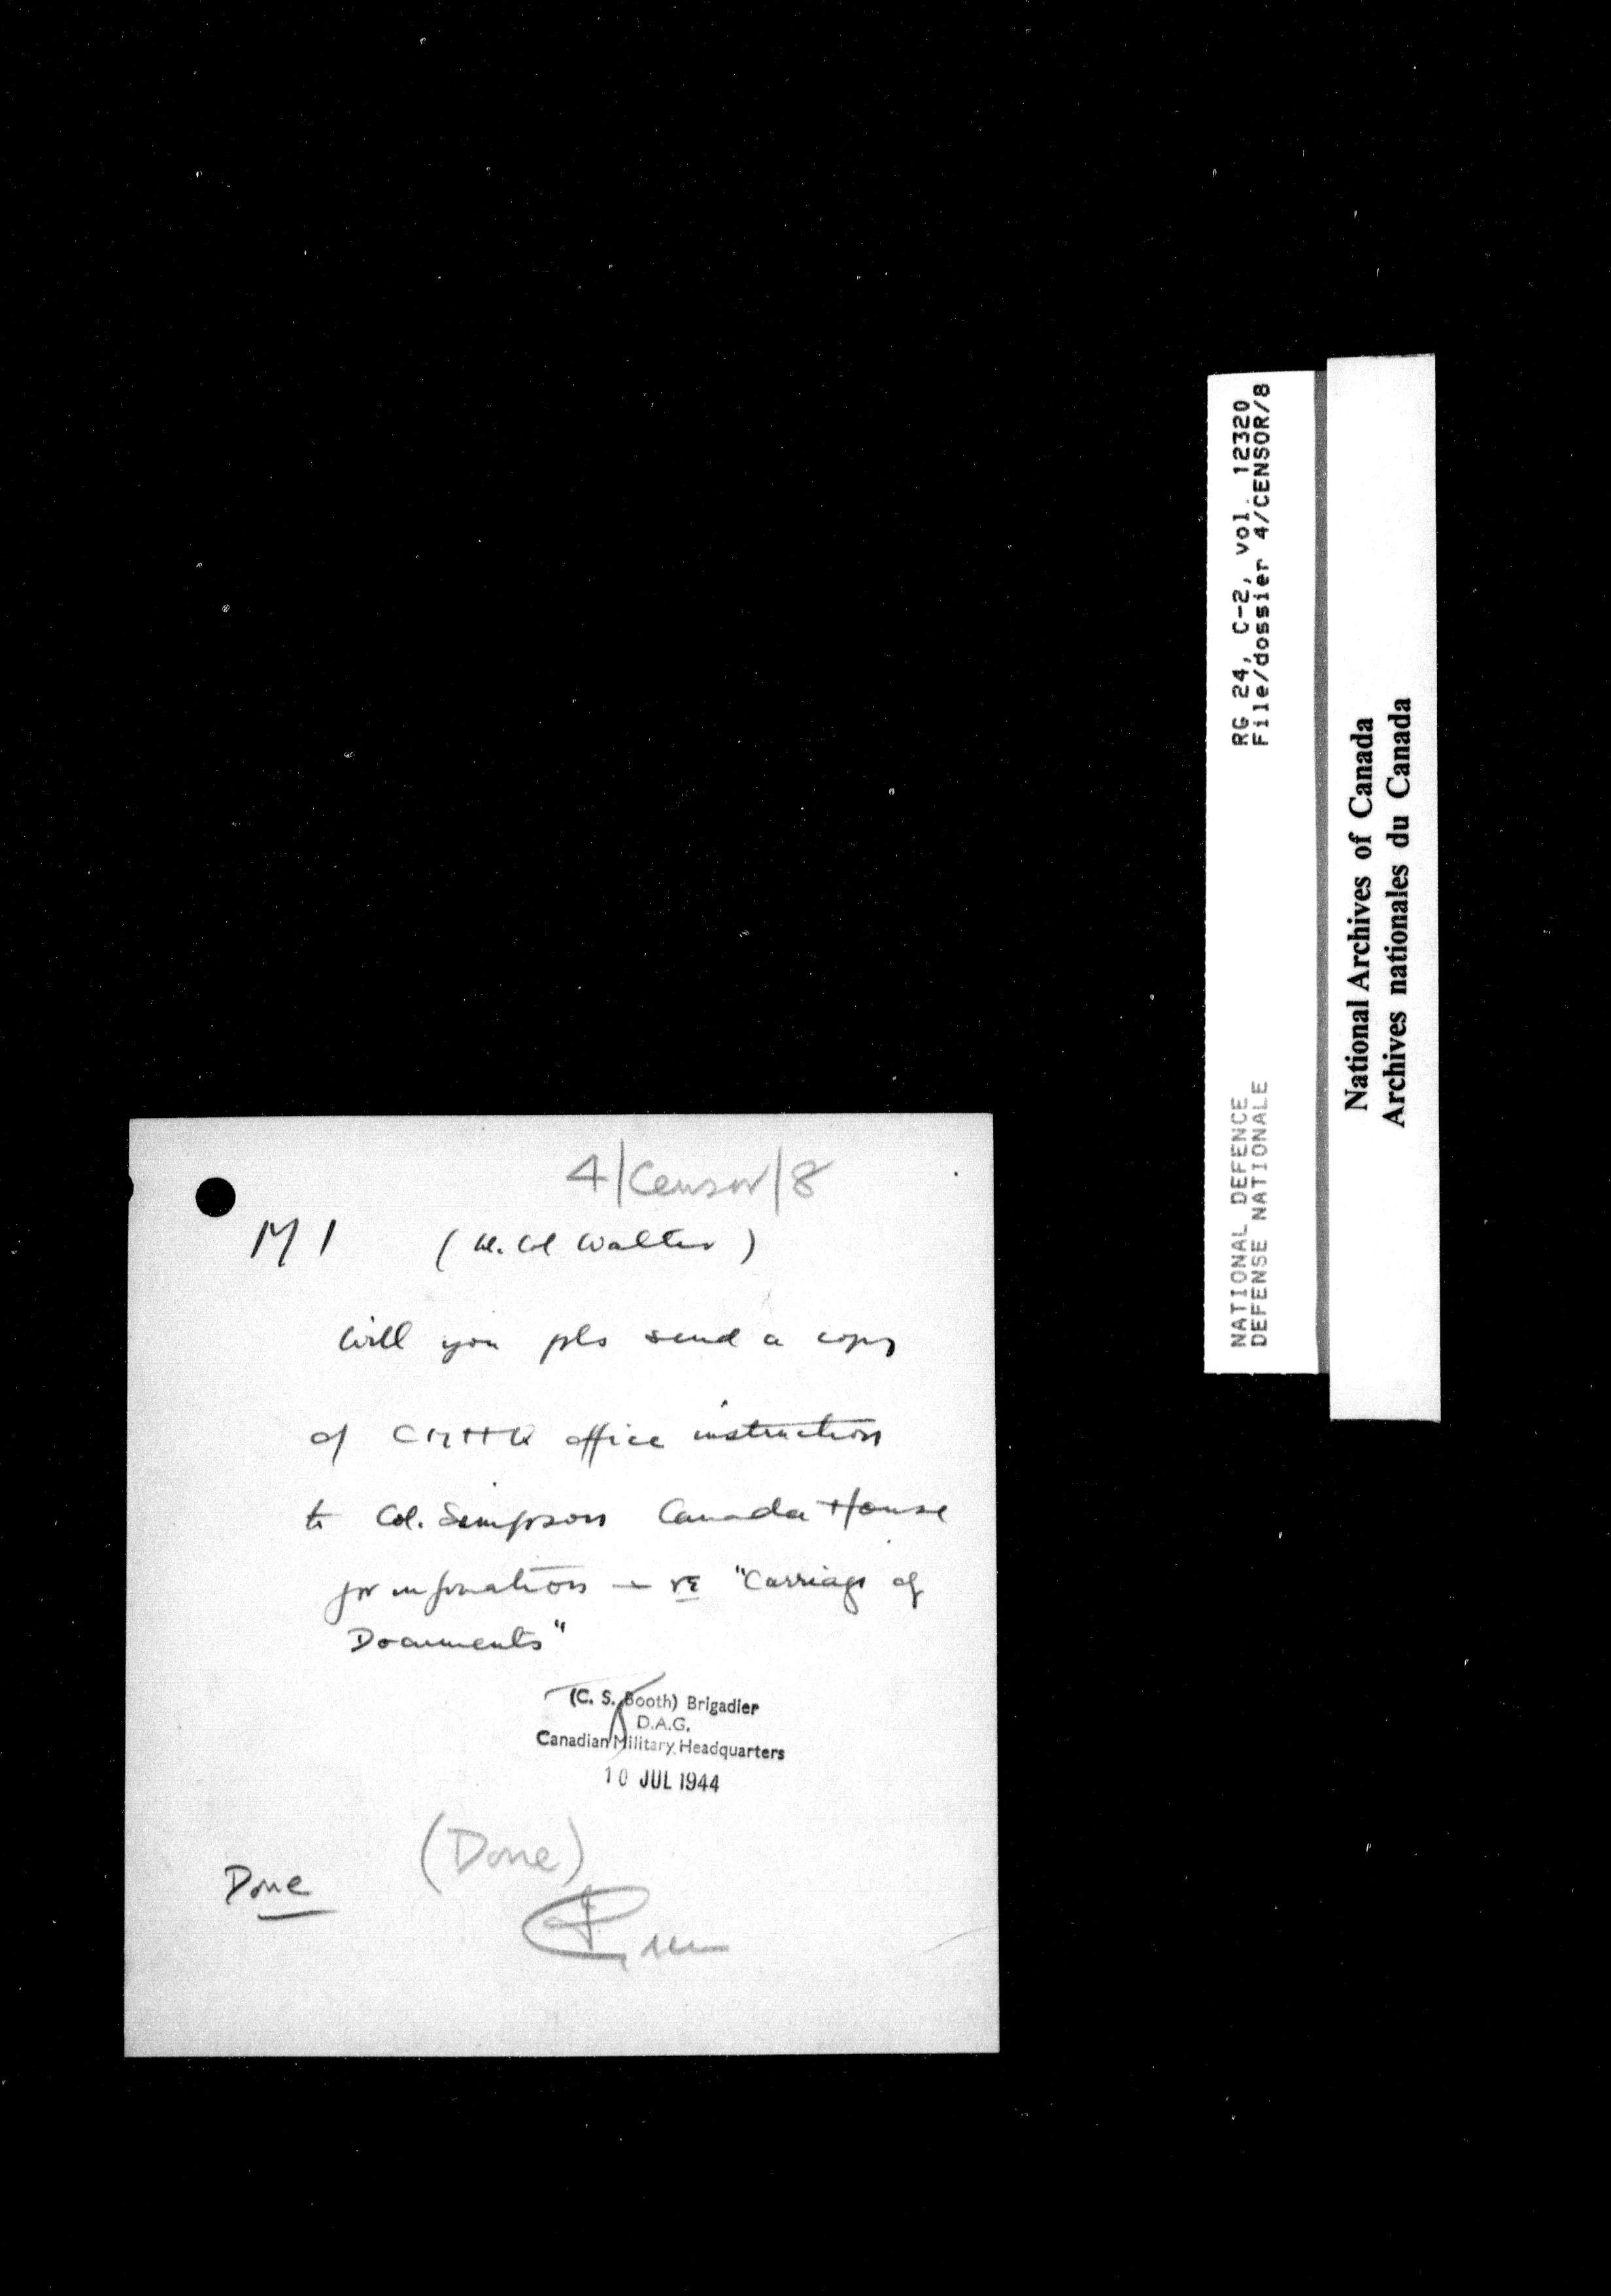 4/Censor/8
M I (Lt. Col Walter)
Will you pls send a copy
of CMHQ office instruction
to Col. Simpson Canada House
for information — re "Carriage of
Documents"
(C. S. Booth) Brigadier
D.A.G.
Canadian Military Headquarters
10 JUL 1944
(Done)
Done
RG 24, C-2, vol. 12320
File/dossier 4/CENSOR/8
NATIONAL DEFENCE
DEFENSE NATIONALE
National Archives of Canada
Archives nationales du Canada